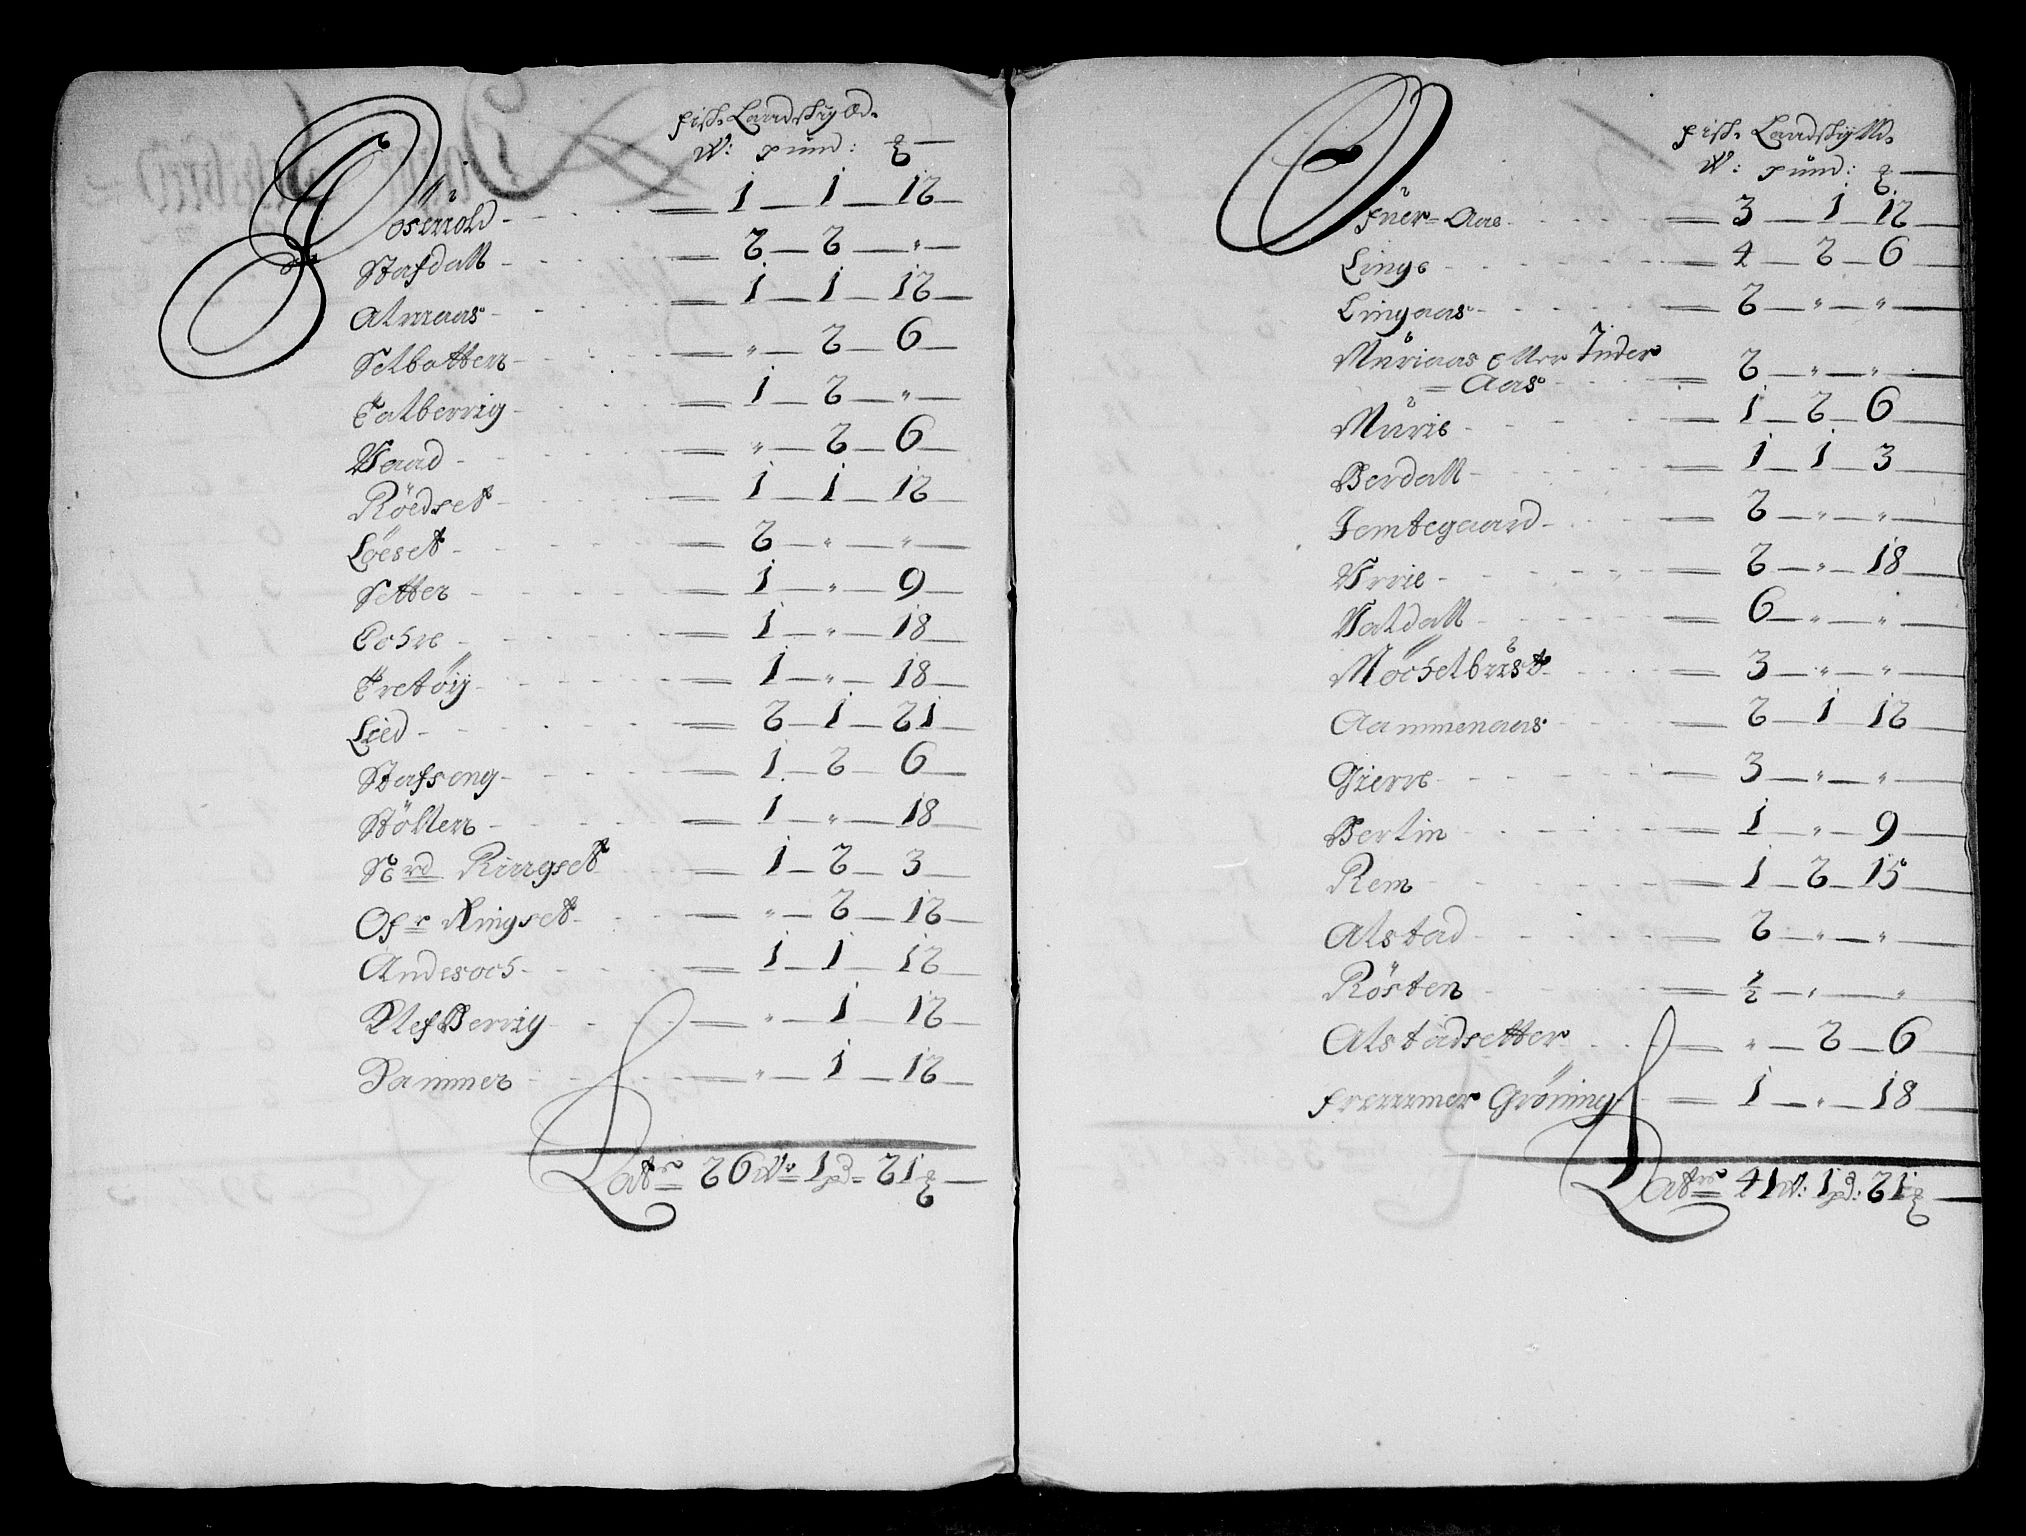 fisk. Landskÿld.
W: pund: ℔
Rösevold - 1 - 1 - 12
Stafdall - 2 - 2 - "
Almaas - 1 - 1 - 12
Selbotten - " - 2 - 6
Talberrig - 1 - 2 - "
Vaad - " - 2 - 6
Röedset - 1 - 1 - 12
Löeset - 2 - " - "
Setter - 1 - " - 9
Tohre - 1 - " - 18
Tretöÿ - 1 - " - 18
Lied - 2 - 1 - 21
Stafseng - 1 - 2 - 6
Stöllen - 1 - " - 18
Nerd Ringset - 1 - 2 - 3
Ofr Ringset - " - 2 - 12
Andesoch - 1 - 1 - 12
Klef Berrig - " - 1 - 12
Dammen - " - 1 - 12
Latr 26 W: 1 pd: 21 ℔
fisk. Landskÿlld.
W: pund: ℔
Ofuer-Aae - 3 - 1 - 12
Linge - 4 - 2 - 6
Lingaas - 2 - " - "
Muriaas Eller Inder
= Aas - 2 - " - "
Murie - 1 - 2 - 6
Berdall - 1 - 1 - 3
Jemtegaard - 2 - " - "
Vrrie - 2 - " - 18
Valdall - 6 - " - "
Möchelbust - 3 - " - "
Aammenaas - 2 - 1 - 12
Gierre - 3 - " - "
Berlin - 1 - " - 9
Rem - 1 - 2 - 15
Alstad - 2 - " - "
Rösten - ½ - " - "
Alstadsetter - " - 2 - 6
fremmer Gröning - 1 - " - 18
Latr 41 W: 1 pd: 21 ℔